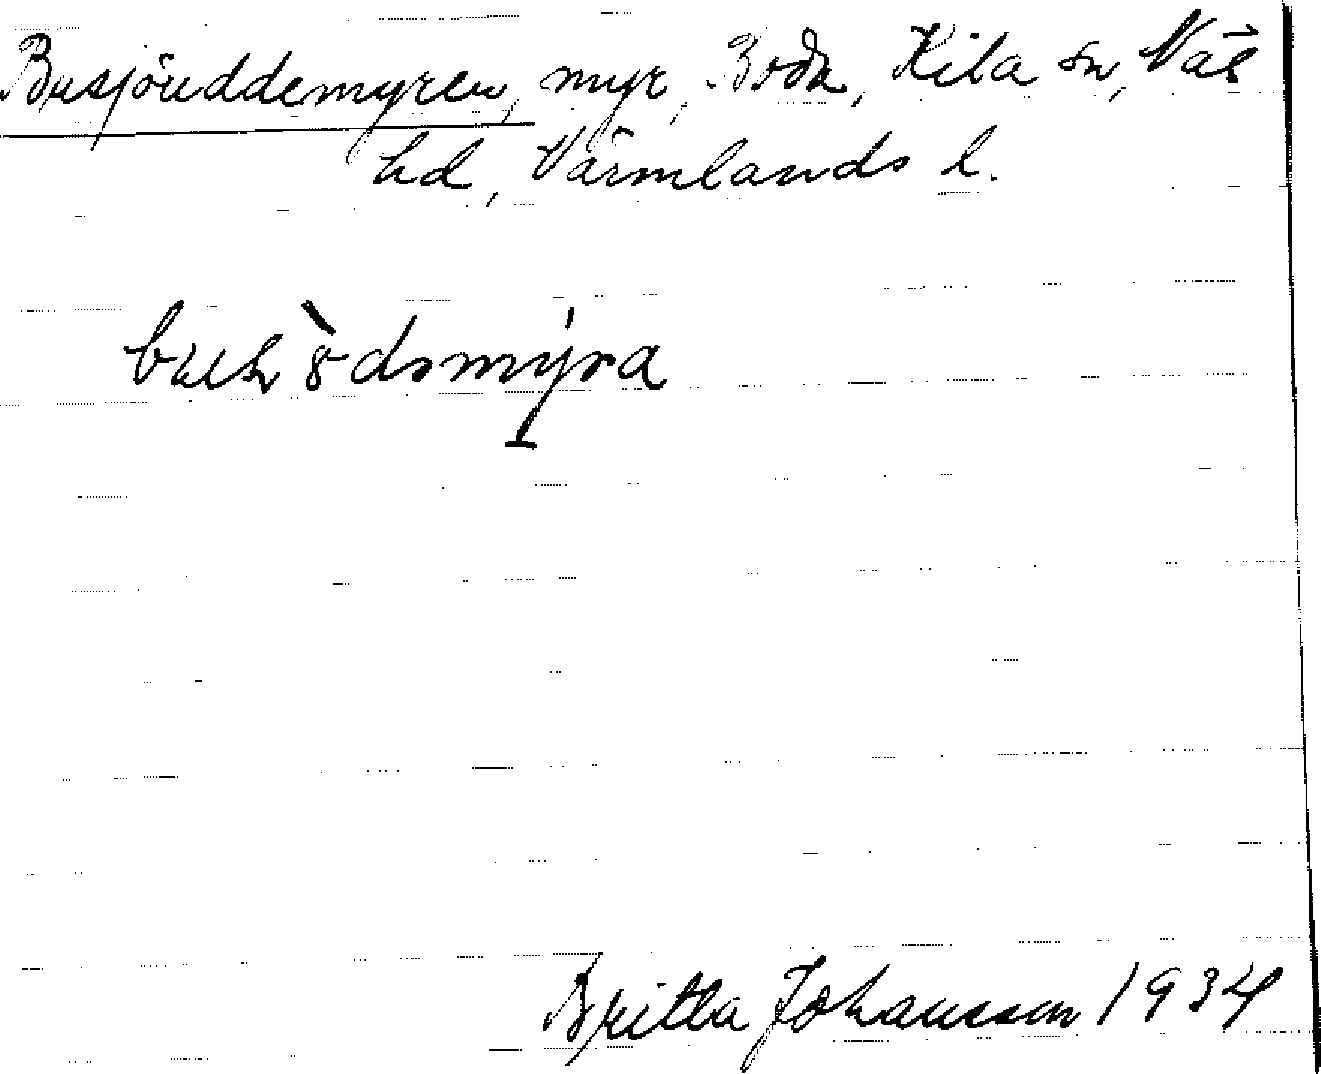 Busjöuddemyren, myr, Boda, Kila sn, Näs
hd, Värmlands l.
Britta Johansson 1934